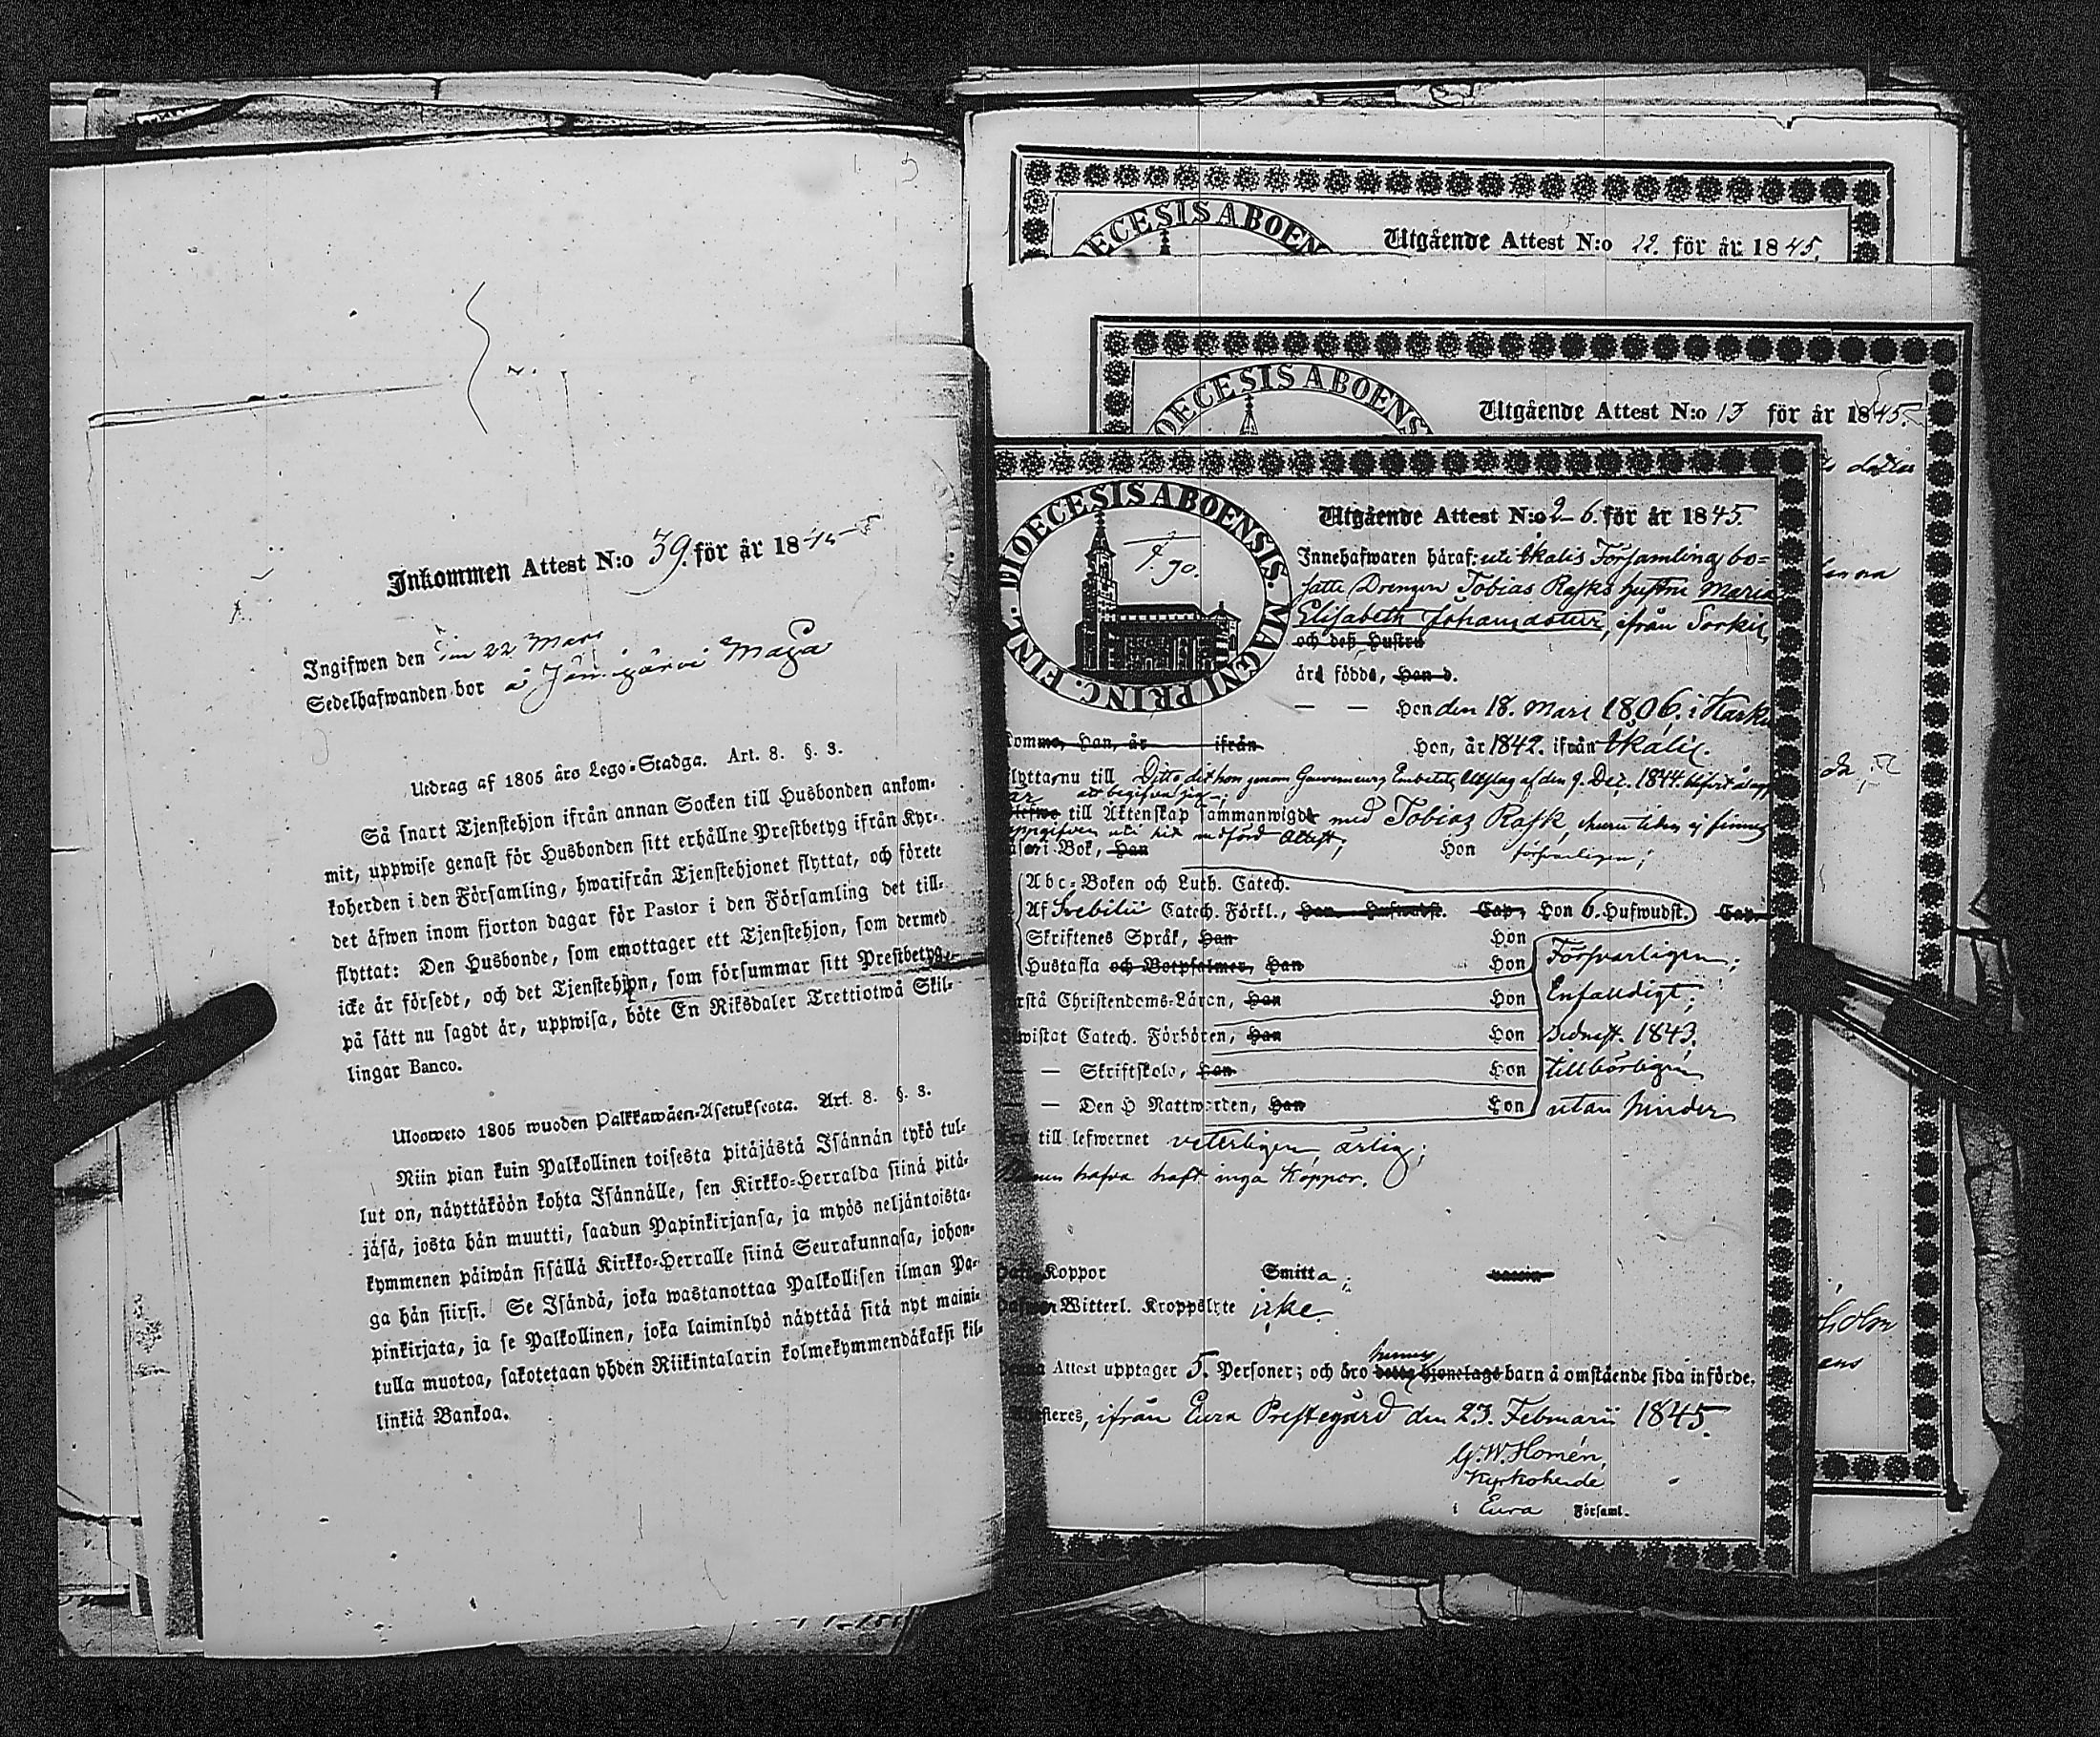 Inkommen Attest N:o 39. för år 1845
Ingifwen den 22 Mars
Sedelhafwanden bor å
Utdrag af 1805 års Lego-Stadga. Art. 8. §. 3.
Så snart Tjenstehjon ifrån annan Socken till Husbonden ankom-
mit, uppwise genast för Husbonden sitt erhållne Prestbetyg ifrån Kyr-
koherden i den Församling, hwarifrån Tjenstehjonet flyttat, och förete
det äfwen inom fjorton dagar för Pastor i den Församling det till-
flyttat: Den Husbonde, som emottager ett Tjenstehjon, som dermed
icke är försedt, och det Tjenstehjon, som försummar sitt Prestbetyg,
på sätt nu sagdt är, uppwisa, böte En Riksdaler Trettiotwå Skil-
lingar Banco.
Ulosweto 1805 wuoden Palkkawäen-Asetuksesta. Art. 8. §. 3.
Niin pian kuin Palkollinen toisesta pitäjästä Isännän tykö tul-
lut on, näyttäköön kohta Isännälle, sen Kirkko-Herralda siinä pitä-
jäsä, josta hän muutti, saadun Papinkirjansa, ja myös neljäntoista-
kymmenen päiwän sisällä Kirkko-Herralle siinä Seurakunnasa, johon-
ga hän siirsi. Se Isändä, joka wastanottaa Palkollisen ilman Pa-
pinkirjata, ja se Palkollinen, joka laiminlyö näyttää sitä nyt maini-
tulla muotoa, sakotetaan yhden Riikintalarin kolmekymmendäkaksi kil-
linkiä Bankoa.
DIOECESIS ABOEN
Utgående Attest N:o 22. för år 1845.
DIOECESIS ABOENS
Utgående Attest N:o 13 för år 1845.
DIOECESIS ABOENSIS. MAGNI PRINC. FINL.
Utgående Attest N:o 26. för år 1845.
Innehafwaren häraf: uti Ikalis Församling bo-
satte Drengen Tobias Rasks hustru Maria
Elisabeth Johansdotter, ifrån Sorkis,
och deß Hustru
äro födde, Han d.
— — Hon den 18. Mars 1806. i
komme, Han, år ifrån Hon, år 1842. ifrån Ikalis.
flytta nu till Ditto dit hon genom Gouverneurs Embetets Utslag af den 9. Dec. 1844. blifvit
att begifva sig;
är till Äktenskap sammanwigde med Tobias Rask, hvaru tiden ej finnes
uppgifven uti hit medförd Attest;
Läser i Bok, Han Hon försvarligen;
Abc-Boken och Luth. Catech.
Af Svebilii Catech. Förkl., Han Hufwudst. Cap, Hon 6. Hufwudst. Cap.
Skriftenes Språk, Han Hon
Hustafla och Botpsalmer, Han Hon Försvarligen;
Förstå Christendoms-Läran, Han Hon Enfaldigt;
Bewistat Catech. Förhören, Han Hon sednast. 1843,
— — Skriftskola, Han Hon tillbörligen
— — Den H Nattwarden, Han Hon utan hinder
till lefwernet veterligen ärlig;
hafva haft inga Koppor.
Koppor Smitta;
Witterl. Kroppslyte icke.
Attest upptager 5. Personer; och äro hennes detta hjonelags barn å omstående sida införde.
ifrån Eura Prestegård den 23. Februarii 1845.
G. W. Homén,
Kyrkoherde
i Eura Församl.